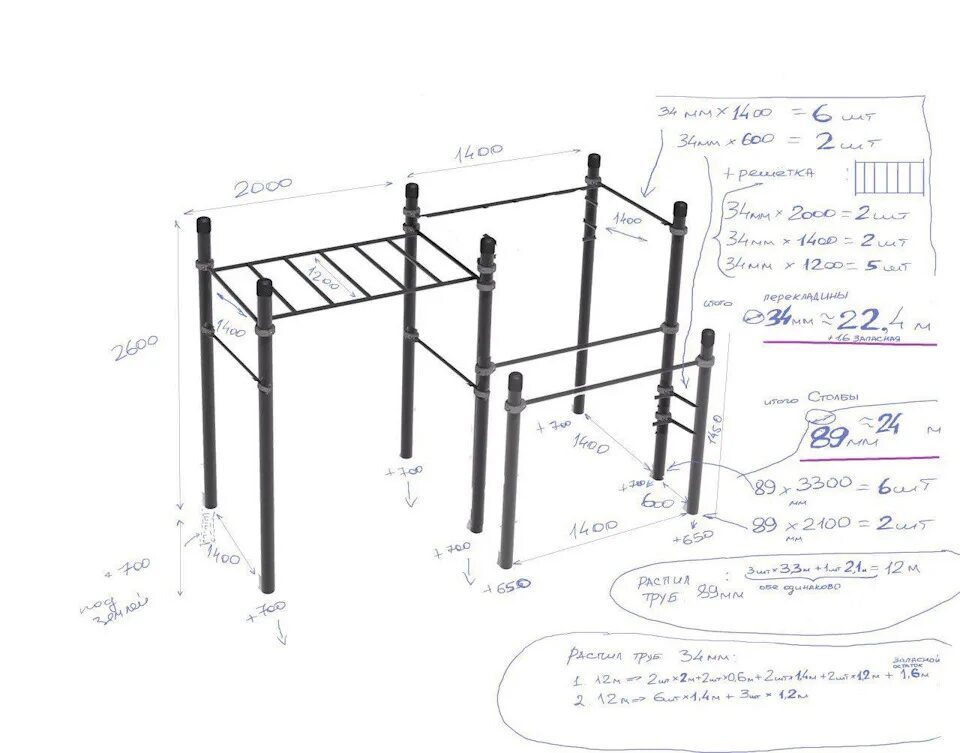 34 мм x 1400 = 6 шт
34мм x 600 = 2 шт
+ решётка :
34мм x 2000 = 2 шт
34мм x 1400 = 2 шт
34мм x 1200 = 5 шт
итого перекладины
⌀34мм ≈ 22,4 м
+ 1,6 запасная
итого столбы
⌀ 89мм ≈ 24 м
89 x 3300 = 6 шт
мм
89 x 2100 = 2 шт
мм
Распил труб 89мм : 3шт x 3,3м + 1шт 2,1м = 12м
обе одинаково
Распил труб 34мм:
1. 12м => 2шт x 2м + 2шт x 0,6м + 2шт x 1,4м + 2шт x 1,2м + 1,6м
запасной остаток
2. 12м => 6шт x 1,4м + 3шт x 1,2м
2000
1400
1400
1200
1400
2600
1450
+ 700
1400
+ 700
+ 700
600
1400
+ 700
+650
+650
1400
+ 700
под землёй
+ 700